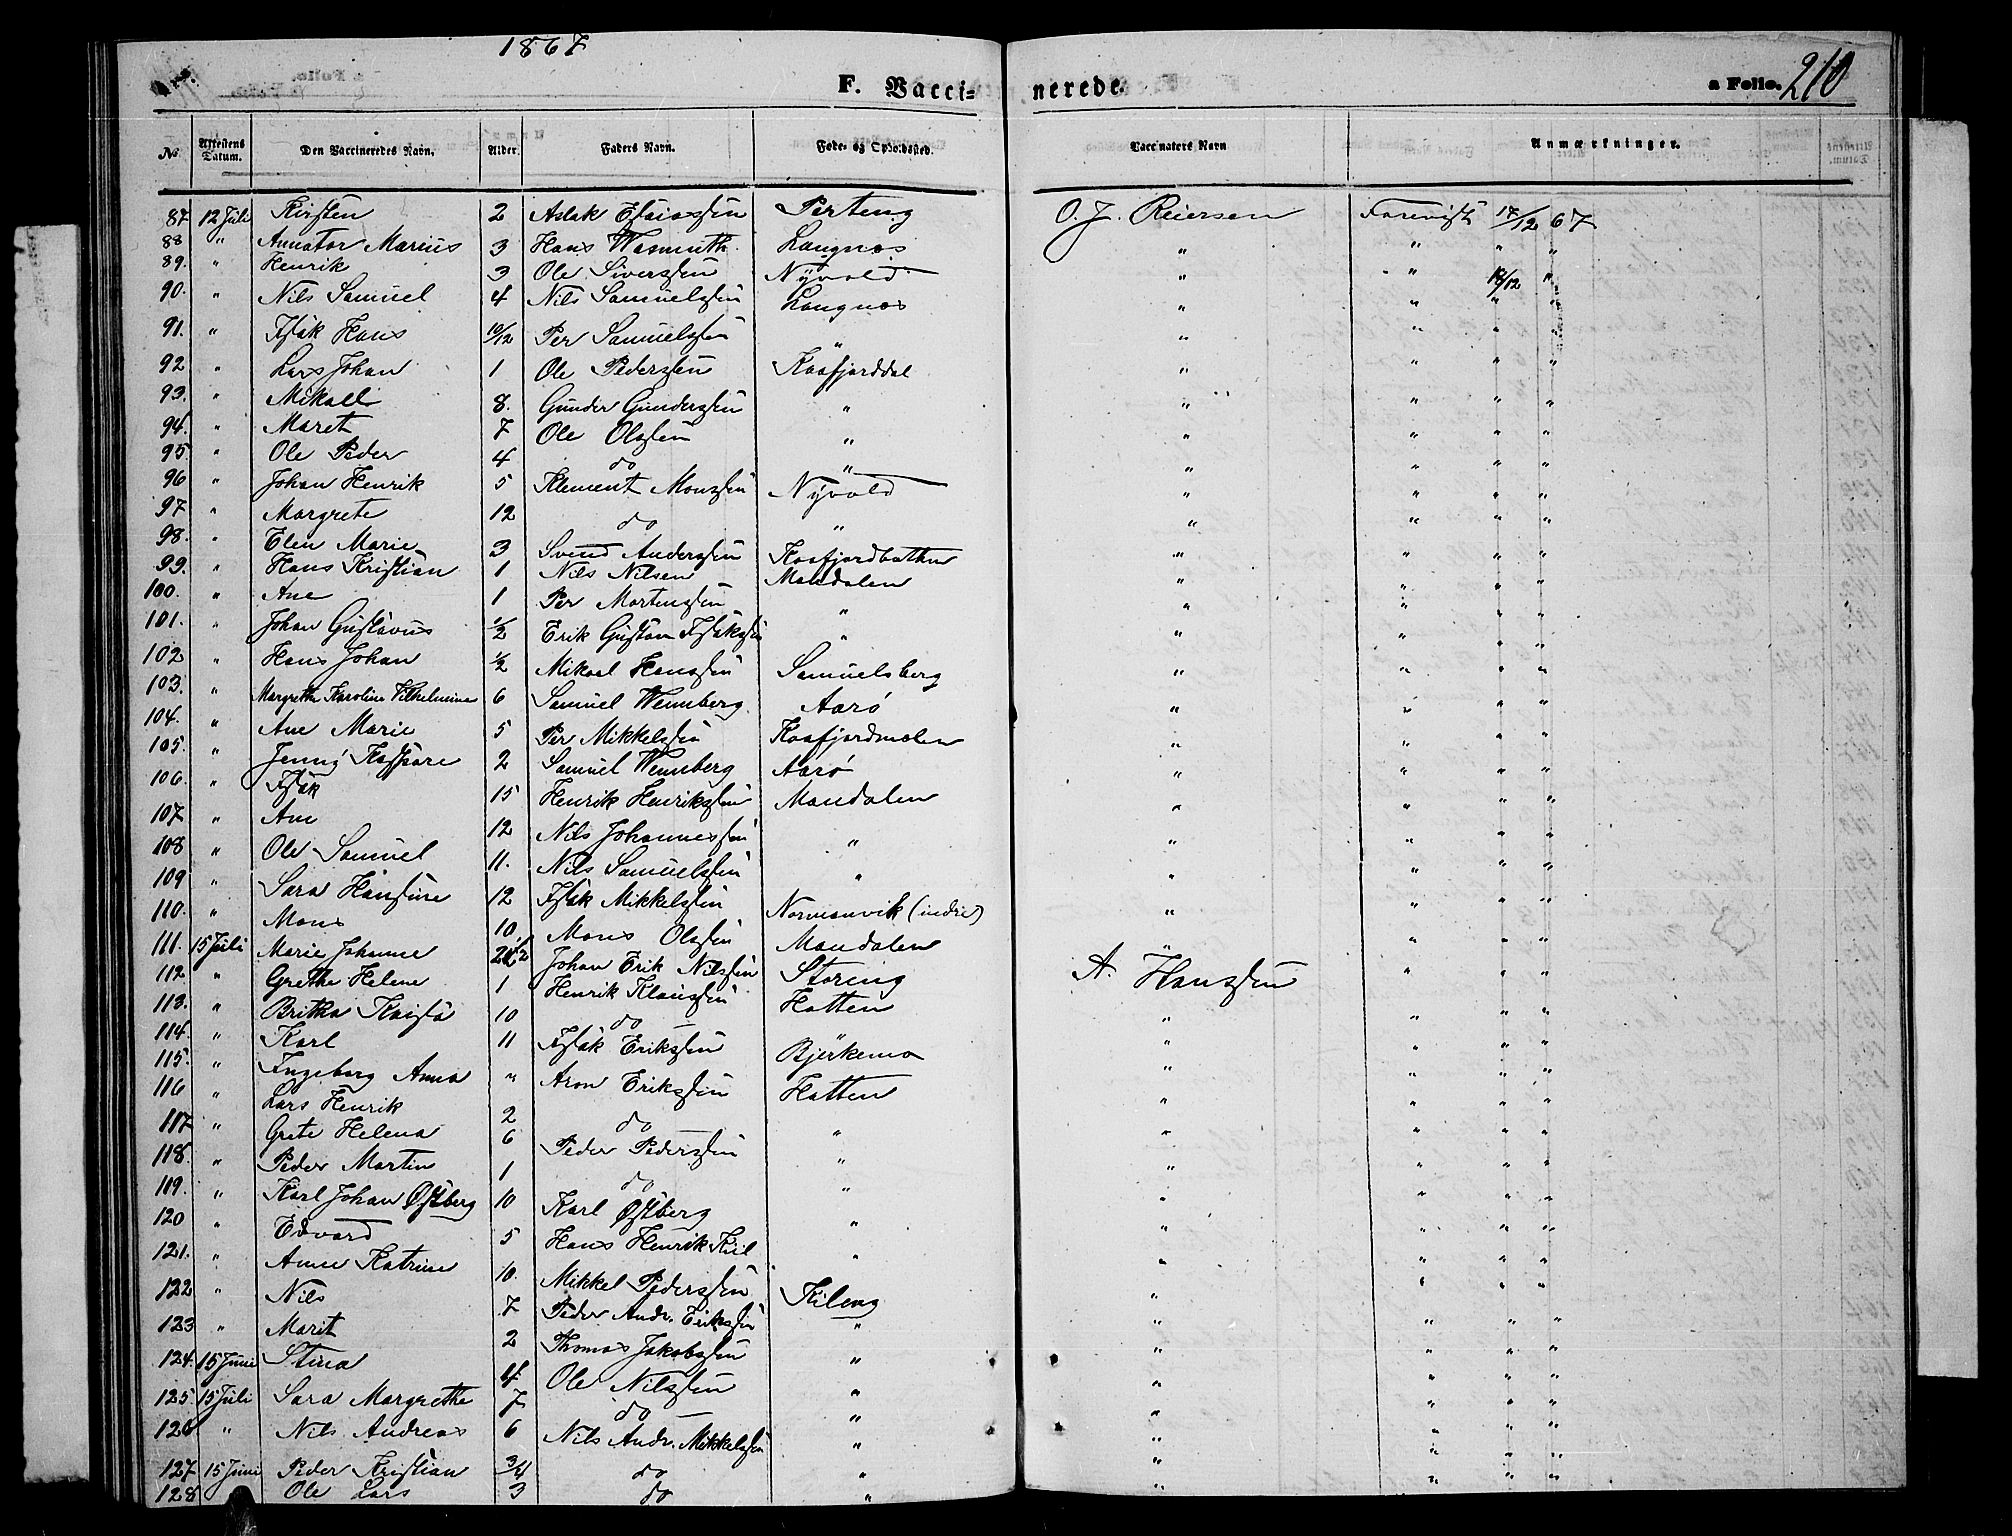 1867
F. Vacci- nerede. a Folio. 210
No. Attestens Datum. Den Vaccineredes Navn. Alder. Faders Navn. Føde- og Opholdssted. Vaccinators Navn Anmærkninger.
87. 12 Juli Kirsten 2 Aslak Esaiassen Perteng O. J. Reiersen Forevist 17/12 67
88 " Annator Marius 3 Hans Wasmuth Langnæs " " " "
89. " Henrik 3 Ole Siverssen Nyvold " " 18/12 "
90. " Nils Samuel 4 Nils Samuelssen Langnæs " " " "
91. " Isak Hans 10/12 Per Samuelssen " " " " "
92 " Lars Johan 1 Ole Pederssen Kaafjorddal " " " "
93. " Mikall 8. Gunder Gunderssen " " " " "
94. " Maret 7 Ole Olssen " " " " "
95. " Ole Peder 4 do " " " " "
96 " Johan Henrik 5 Klement Monssen Nyvold " " " "
97 " Margrete 12 do " " " " "
98. " Elen Marie 3 Svend Anderssen Kaafjordbotten " " " "
99. " Hans Kristian 1 Nils Nilsen Mandalen " " " "
100. " Ane 1 Per Mortenssen " " " " "
101. " Johan Gustavus 1/2 Erik Gustav Isakssen " " " " "
102 " Hans Johan 1/2 Mikael Hanssen Samuelsberg " " " "
103. " Margrethe Karoline Vilhelmine 6 Samuel Wennberg Aarø " " " "
104. " Ane Marie 5 Per Mikkelssen Kaafjordmælen " " " "
105. " Jenny Kaspare 2 Samuel Wennberg Aarø " " " "
106. " Isak 15 Henrik Henrikssen Mandalen " " " "
107 " Ane 12 Nils Johannessen " " " " "
108 " Ole Samuel 11. Nils Samuelssen " " " " "
109 " Sara Hansine 12 Isak Mikkelssen Normanvik (indre) " " " "
110. " Mons 10. Mons Olssen Mandalen " " "
111. 15 Juli Marie Johanne Johan Erik Nilssen Storeng A. Hanssen " " "
112 " Grethe Helene 1 Henrik Klaussen Hatten " " " "
113. " Britha Kaisa 10 do " " " "
114. " Karl 11 Isak Erikssen Bjerkemo " " " "
115. " Ingeborg Anna " Aron Erikssen Hatten " " " "
116 " Lars Henrik 2 do " " " " "
117 " Grete Helena 6 Peder Pederssen " " " " "
118. " Peder Martin 1 do " " " " "
119. " Karl Johan Østberg 10 Karl Østberg " " " " "
120 " Edvard 5 Hans Henrik Kiil " " " " "
121. " Anne Katrine 10. Mikkel Pederssen Kileng " " " "
122 " Nils 7 Peder Andr. Erikssen " " " " "
123 " Marit 2 Thomas Jakobssen " " " " "
124. 15 Juni Stina 4 Ole Nilssen " " " " "
125 15 Juli Sara Margrethe 7 do " " " " "
126 " Nils Andreas 6 Nils Andr. Mikkelssen " " " " "
127 15 Juni Peder Kristian 3/4 do " " " " "
128 Ole Lars 3 do " "